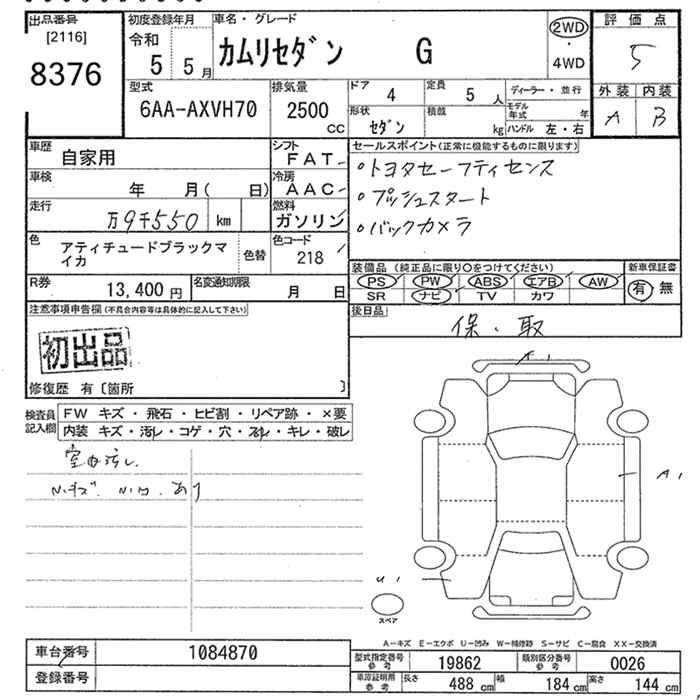 出品番号
[2116]
8376
初度登録年月
令和
5 5月
車名・グレード
カムリセダン G
2WD
・
4WD
評価点
5
外装 内装
A B
型式
6AA-AXVH70
排気量
2500
CC
ドア
4
定員
5 人
形状
セダン
積載
kg
ディーラー・並行
モデル年式 年
ハンドル 左・右
車歴
自家用
シフト
FAT
車検
年 月( 日)
冷房
AAC
走行
万9千550 km
燃料
ガソリン
色
アティチュードブラックマイカ
色替
色コード
218
R券
13,400 円
名変通知期限
月 日
セールスポイント(正常に機能するものに限ります)
・トヨタセーフティセンス
・プッシュスタート
・バックカメラ
装備品 (純正品に限り〇をつけてください)
PS PW ABS エアB AW
SR ナビ TV カワ
新車保証書
有 無
後日品
保・取
注意事項申告欄(不具合内容等は具体的に記入して下さい)
初出品
修復歴 有〔箇所 〕
検査員記入欄
FW キズ・飛石・ヒビ割・リペア跡・×要
内装 キズ・汚レ・コゲ・穴・スレ・キレ・破レ
室内汚レ
あり
A1
A1
U1
スペア
A-キズ E-エクボ U-凹み W-補修跡 S-サビ C-腐食 XX-交換済
車台番号
1084870
登録番号
型式指定番号
参考
19862
類別区分番号
参考
0026
車庫証明用
参考
長さ
488 cm
幅
184 cm
高さ
144 cm